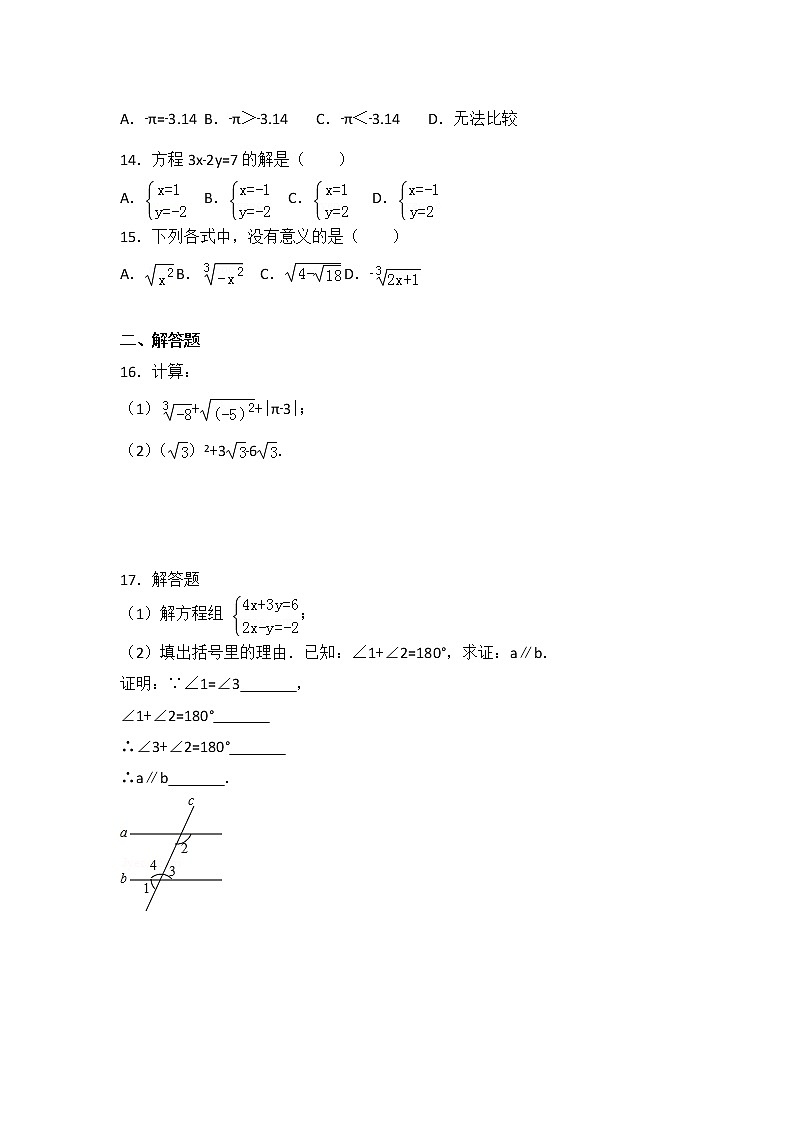 A．﹣π=﹣3.14 B．﹣π＞﹣3.14 C．﹣π＜﹣3.14 D．无法比较
14．方程 3x﹣2y=7 的解是（ ）
A．{x=1 y=−2 B．{x=−1 y=−2 C．{x=1 y=2 D．{x=−1 y=2
15．下列各式中，没有意义的是（ ）
A．√x² B．∛−x² C．√4−√18 D．﹣∛2x+1
二、解答题
16．计算：
（1）∛−8+√(−5)²+|π﹣3|；
（2）（√3）²+3√3﹣6√3．
17．解答题
（1）解方程组 {4x+3y=6 2x−y=−2；
（2）填出括号里的理由．已知：∠1+∠2=180°，求证：a∥b．
证明：∵∠1=∠3_______，
∠1+∠2=180°_______
∴∠3+∠2=180°_______
∴a∥b_______．
c
a
2
4
3
b
1